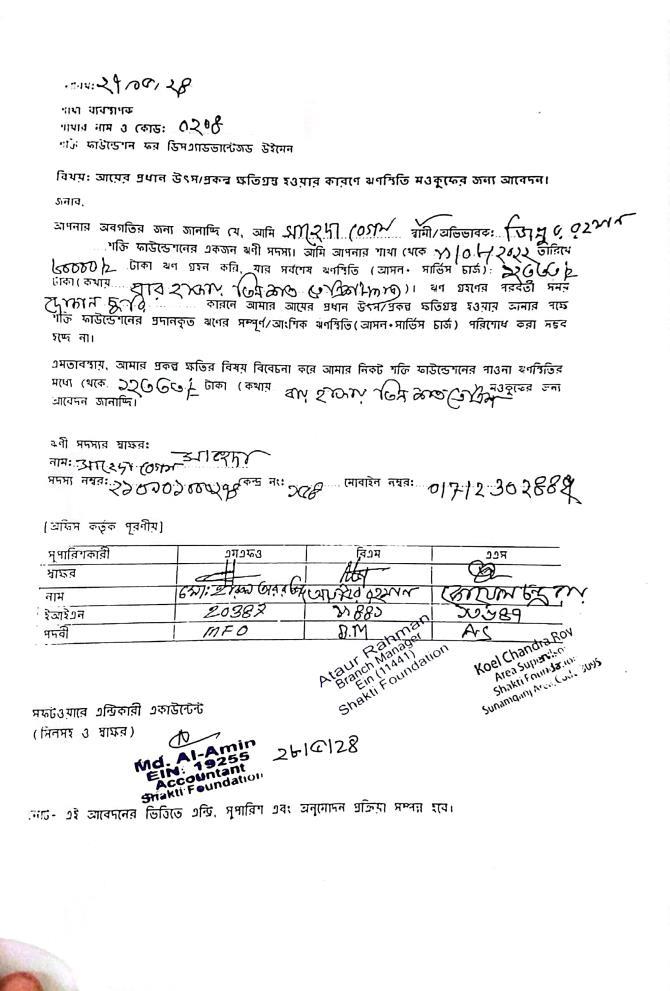 ২৭/০৫/২৪
শাখা ব্যবস্থাপক
শাখার নাম ও কোড: ০২০৪
শক্তি ফাউন্ডেশন ফর ডিসএ্যাডভান্টেজড উইমেন
বিষয়: আয়ের প্রধান উৎস/প্রকল্প ক্ষতিগ্রস্থ হওয়ার কারণে ঋণস্থিতি মওকুফের জন্য আবেদন।
জনাব,
আপনার অবগতির জন্য জানাচ্ছি যে, আমি সাহেদা বেগম স্বামী/অভিভাবক: জিল্লুর রহমান
শক্তি ফাউন্ডেশনের একজন ঋণী সদস্য। আমি আপনার শাখা থেকে তারিখে
টাকা ঋণ গ্রহন করি, যার সর্বশেষ ঋণস্থিতি (আসল+ সার্ভিস চার্জ): ১২৩৩৩/=
টাকা (কথায় বার হাজার তিনশত তেত্রিশ )। ঋণ গ্রহণের পরবর্তী সময়
দোকান চুরি কারনে আমার আয়ের প্রধান উৎস/প্রকল্প ক্ষতিগ্রস্থ হওয়ায় আমার পক্ষে
শক্তি ফাউন্ডেশনের প্রদানকৃত ঋণের সম্পূর্ণ/আংশিক ঋণস্থিতি (আসল+সার্ভিস চার্জ) পরিশোধ করা সম্ভব
হচ্ছে না।
এমতাবস্থায়, আমার প্রকল্প ক্ষতির বিষয় বিবেচনা করে আমার নিকট শক্তি ফাউন্ডেশনের পাওনা ঋণস্থিতির
মধ্যে থেকে ১২৩৩৩/= টাকা (কথায় বার হাজার তিন শত তেত্রিশ মওকুফের জন্য
আবেদন জানাচ্ছি।
ঋণী সদস্যর স্বাক্ষর: সাহেদা
নাম: সাহেদা বেগম
সদস্য নম্বর: কেন্দ্র নং: মোবাইন নম্বর:
[অফিস কর্তৃক পূরণীয়]
সুপারিশকারী এমএফও বিএম এএস
স্বাক্ষর
নাম আতাউর রহমান কোয়েল চন্দ্র রায়
ইআইএন 20387 ১১৪৪১
পদবী MFO B.M AS
Ataur Rahman
Branch Manager
Ein (11441)
Shakti Foundation
Koel Chandra Roy
Area Supervisor
Shakti Foundation
Sunamganj Area, Code
সফটওয়ারে এন্ট্রিকারী একাউন্টেন্ট
(সিলসহ ও স্বাক্ষর)
Md. Al-Amin
EIN: 19255
Accountant
Shakti Foundation
২৮/৫/২৪
নোট- এই আবেদনের ভিত্তিতে এন্ট্রি, সুপারিশ এবং অনুমোদন প্রক্রিয়া সম্পন্ন হবে।